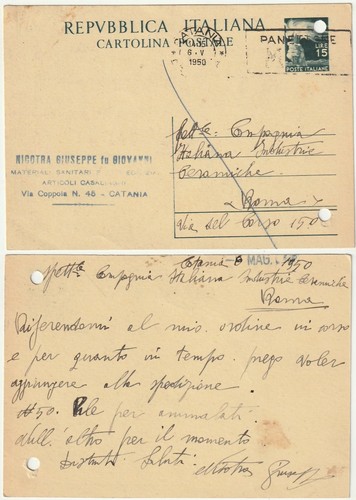 REPVBBLICA ITALIANA
CARTOLINA POSTALE
CATANIA
6 - V
1950
PANE
LIRE
15
POSTE ITALIANE
Spett.le Compagnia
Italiana Industrie
Ceramiche
Roma
Via del Corso 150
NICOTRA GIUSEPPE fu GIOVANNI
MATERIALI SANITARI
ARTICOLI CASALINGHI
Via Coppola N. 48 - CATANIA
Catania - 6 MAG. 1950
Spett.le Compagnia Italiana Industrie Ceramiche
Roma
Riferendomi al mio ordine in corso
e per quanto in tempo prego voler
aggiungere alla spedizione
N 50. Pale per ammalati.
Null'altro per il momento
Distinti Saluti
Nicotra Giuseppe